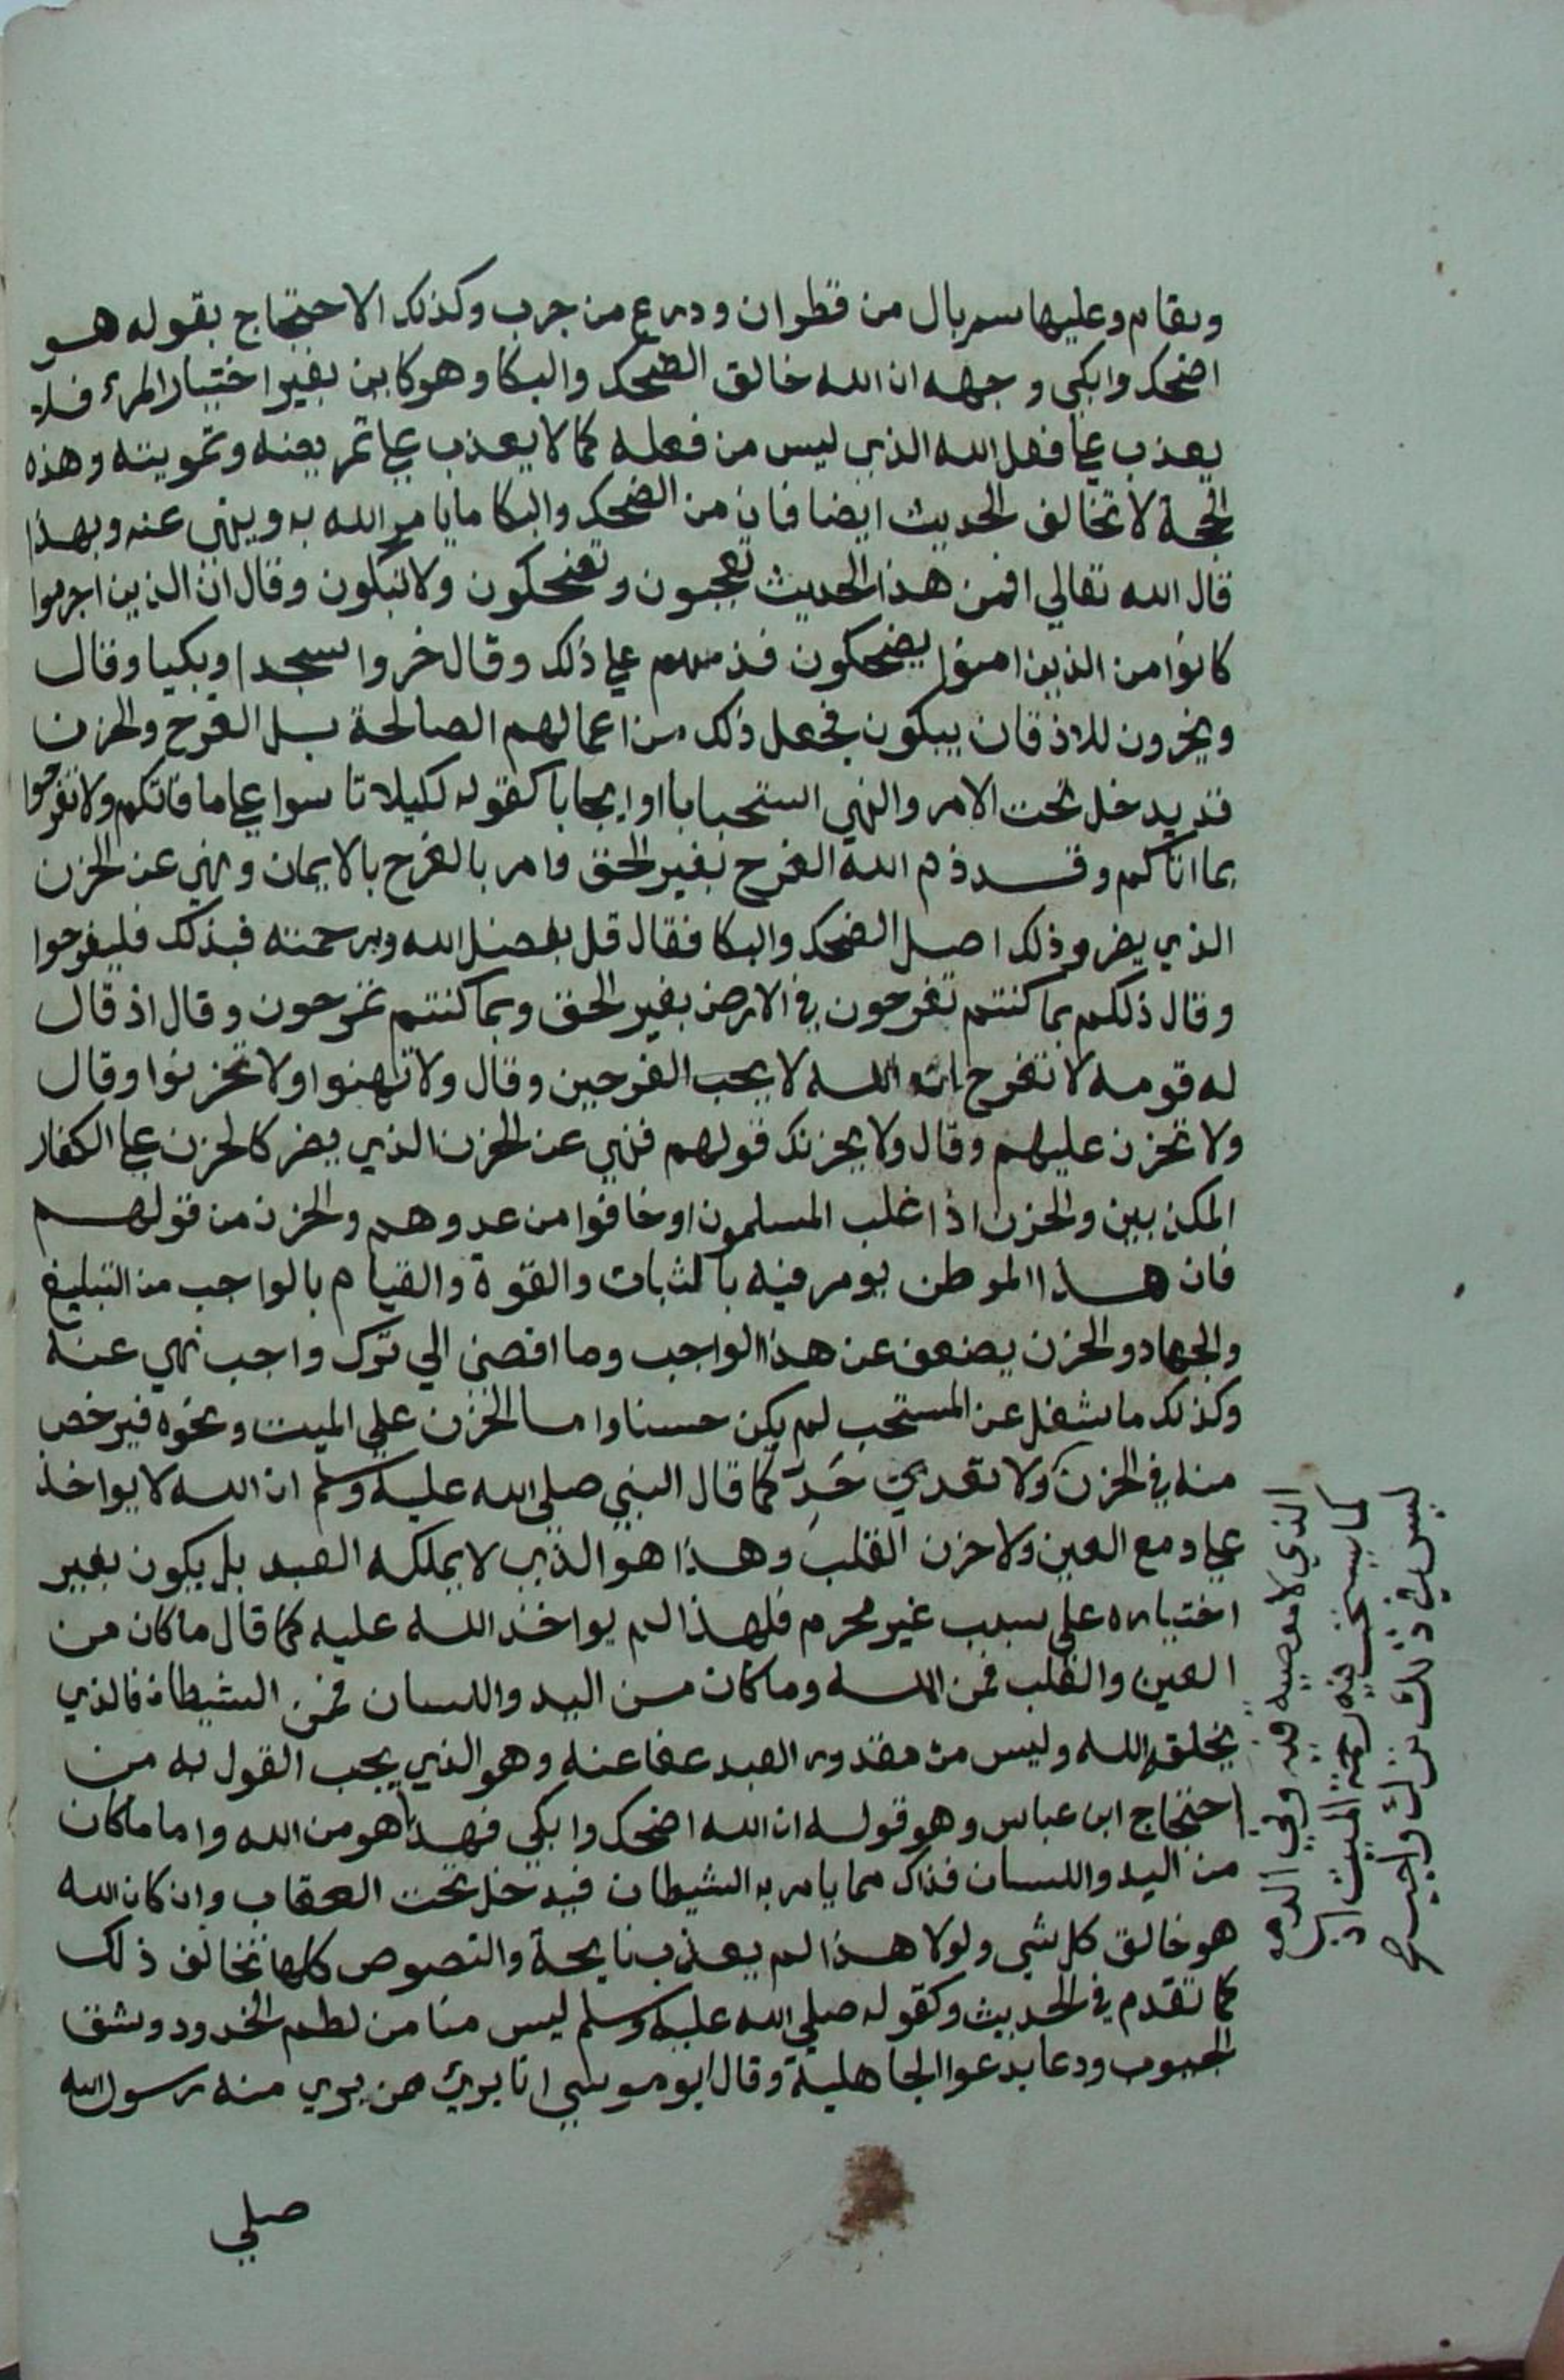 وبقام وعليها سربال من قطران ودرع من جرب وكذلك الاحتجاج بقوله هو
اضحك وابكى وجهه ان الله خالق الضحك والبكا وهو كاين بغير اختيار المرء فلا
يعذب على فعل الله الذي ليس من فعله كما لا يعذب على تمريضه وتمويته وهذه
الحجة لا تخالف الحديث ايضا فان من الضحك والبكا ما يامر الله به وينهى عنه وبهذا
قال الله تعالي افمن هذا الحديث تعجبون وتضحكون ولا تبكون وقال ان الذين اجرموا
كانوا من الذين امنوا يضحكون فذمهم علي ذلك وقال خروا سجدا وبكيا وقال
ويخرون للاذقان يبكون فجعل ذلك من اعمالهم الصالحة بل الفرح والحزن
قد يدخل تحت الامر والنهي استحبابا او ايجابا كقوله لكيلا تاسوا علي ما فاتكم ولا تفرحوا
بما اتاكم وقد ذم الله الفرح بغير الحق وامر بالفرح بالايمان ونهي عن الحزن
الذي يضر وذلك اصل الضحك والبكا فقال قل بفضل الله وبرحمته فبذلك فليفرحوا
وقال ذلكم بما كنتم تفرحون في الارض بغير الحق وبما كنتم تمرحون وقال اذ قال
له قومه لا تفرح ان الله لا يحب الفرحين وقال ولا تهنوا ولا تحزنوا وقال
ولا تحزن عليهم وقال ولا يحزنك قولهم فنهي عن الحزن الذي يضر كالحزن علي الكفار
المكذبين والحزن اذا غلب المسلمون او خافوا من عدوهم والحزن من قولهم
فان هذا الموطن يومر فيه بالثبات والقوة والقيام بالواجب من التبليغ
والجهاد والحزن يضعف عن هذا الواجب وما افضى الي ترك واجب نهي عنه
وكذلك ما شغل عن المستحب لم يكن حسنا واما الحزن علي الميت ونحوه فيرخص
منه في الحزن ولا تعدي حد كما قال النبي صلي الله عليه وسلم ان الله لا يواخذ
علي دمع العين ولا حزن القلب وهذا هو الذي لا يملكه العبد بل يكون بغير
اختياره علي سبب غير محرم فلهذا لم يواخذ الله عليه كما قال ما كان من
العين والقلب فمن الله وما كان من اليد واللسان فمن الشيطان فالذي
يخلقه الله وليس من مقدور العبد عفا عنه وهو الذي يجب القول به من
احتجاج ابن عباس وهو قوله ان الله اضحك وابكي فهذا هو من الله واما ما كان
من اليد واللسان فذاك مما يامر به الشيطان فيدخل تحت العقاب وان كان الله
هو خالق كل شي ولولا هذا لم يعذب نايحة والنصوص كلها تخالف ذلك
كما تقدم في الحديث وكقوله صلي الله عليه وسلم ليس منا من لطم الخدود وشق
الجيوب ودعا بدعوا الجاهلية وقال ابو موسي انا بريء من بري منه رسول الله
صلي
الذي لا معصيه فيه وفي الدمع
كما يستحب فيه رحمة الميت اذ
ليس في ذلك ترك واجب صح